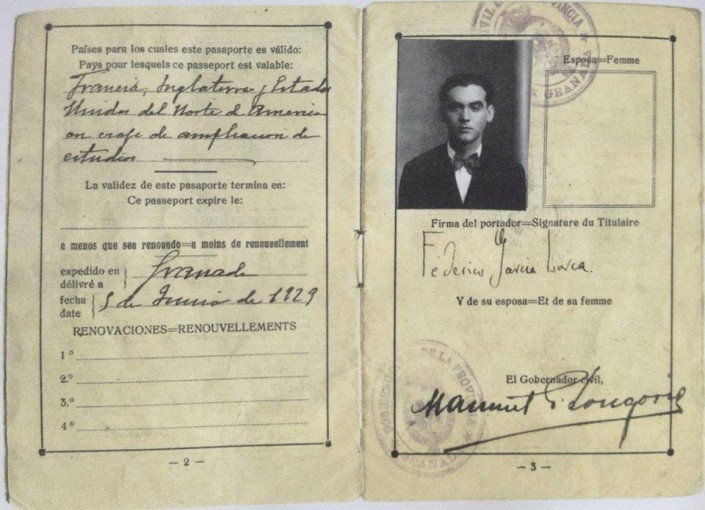 Países para los cuales este pasaporte es válido:
Pays pour lesquels ce passeport est valable:
Francia, Inglaterra y Estados
Unidos del Norte de America
en viaje de ampliacion de
estudios
La validez de este pasaporte termina en:
Ce passeport expire le:
a menos que sea renovado=a moins de renouvellement
expedido en
délivré a
Granada
fecha
date
5 de Junio de 1929
RENOVACIONES=RENOUVELLEMENTS
1º
2.º
3.º
4º
— 2 —
PROVINCIA
GRANADA
Esposa=Femme
Firma del portador=Signature du Titulaire
Federico García Lorca.
Y de su esposa=Et de sa femme
DE LA PROVINCIA
GRANADA
El Gobernador civil,
Manuel
— 3 —